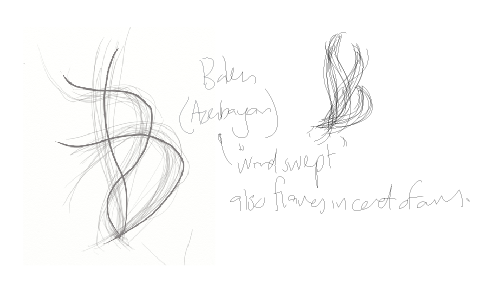 Baku
(Azerbayan)
"windswept"
also flames in coat of arms.